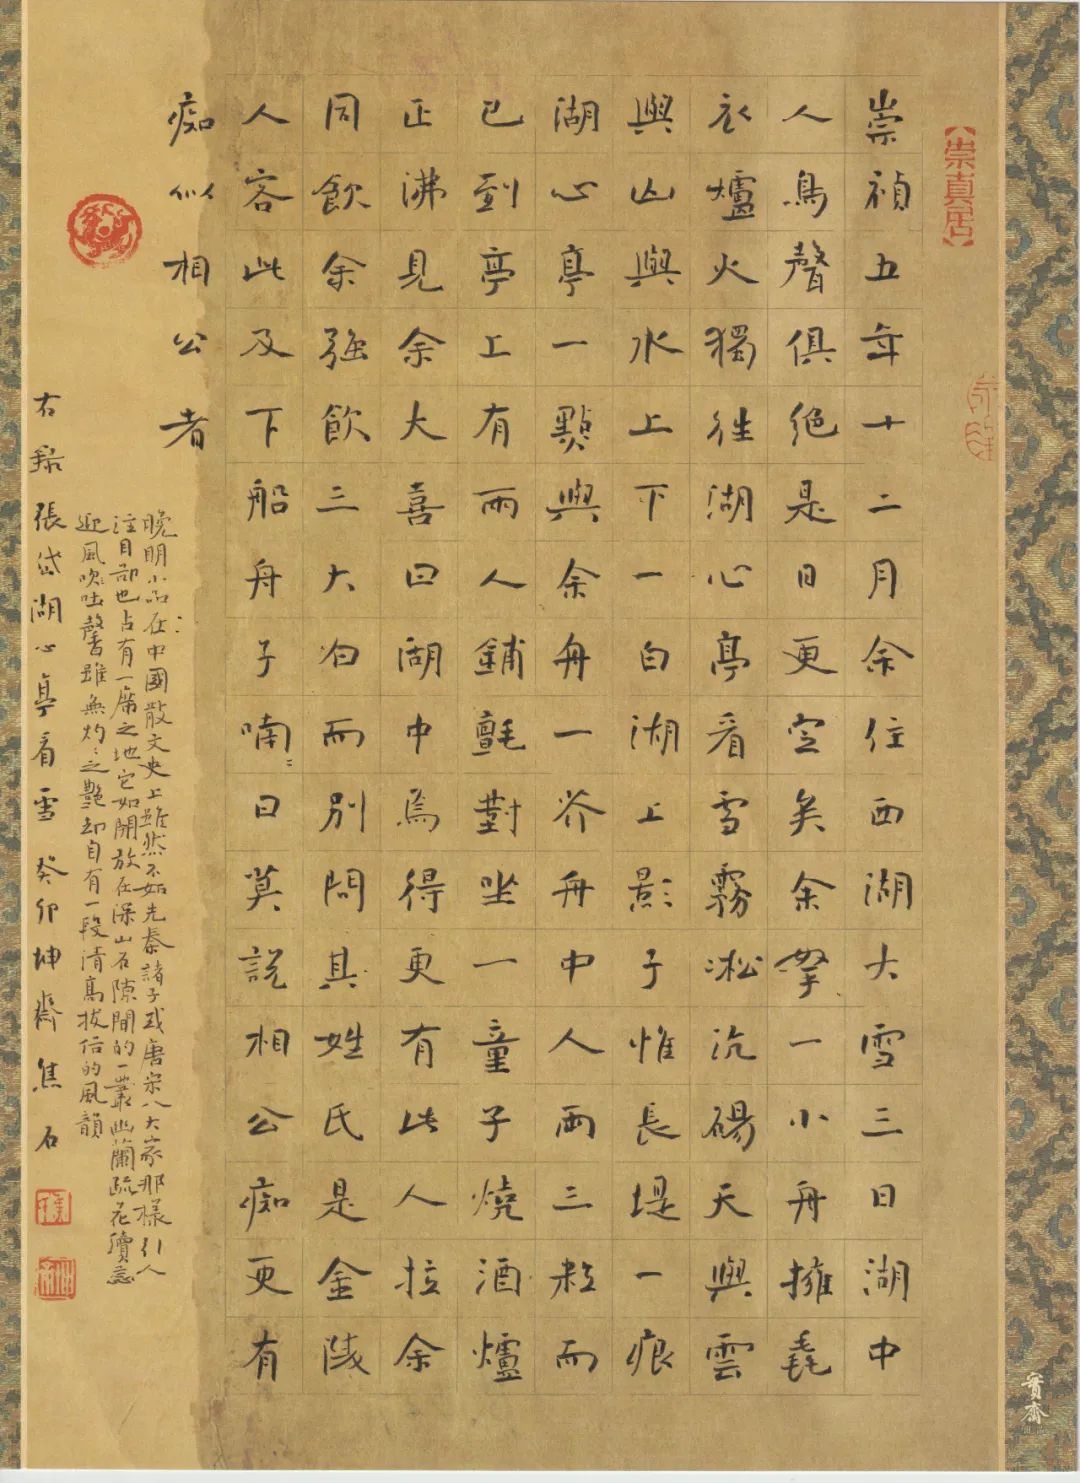 崇真居
崇禎五年十二月余住西湖大雪三日湖中
人鳥聲俱絕是日更定矣余拏一小舟擁毳
衣爐火獨往湖心亭看雪霧淞沆碭天與雲
與山與水上下一白湖上影子惟長堤一痕
湖心亭一點與余舟一芥舟中人兩三粒而
已到亭上有兩人鋪氈對坐一童子燒酒爐
正沸見余大喜曰湖中焉得更有此人拉余
同飲余強飲三大白而別問其姓氏是金陵
人客此及下船舟子喃〻曰莫說相公痴更有
痴似相公者
晚明小品在中國散文史上雖然不如先秦諸子或唐宋八大家那樣引人
注目卻也占有一席之地它如開放在深山石隙間的一叢幽蘭疏花續蕊
迎風吹吐馨雖無灼〻之艷却自有一段清高拔俗的風韻
右錄張岱湖心亭看雪癸卯坤齋焦石
寳齋